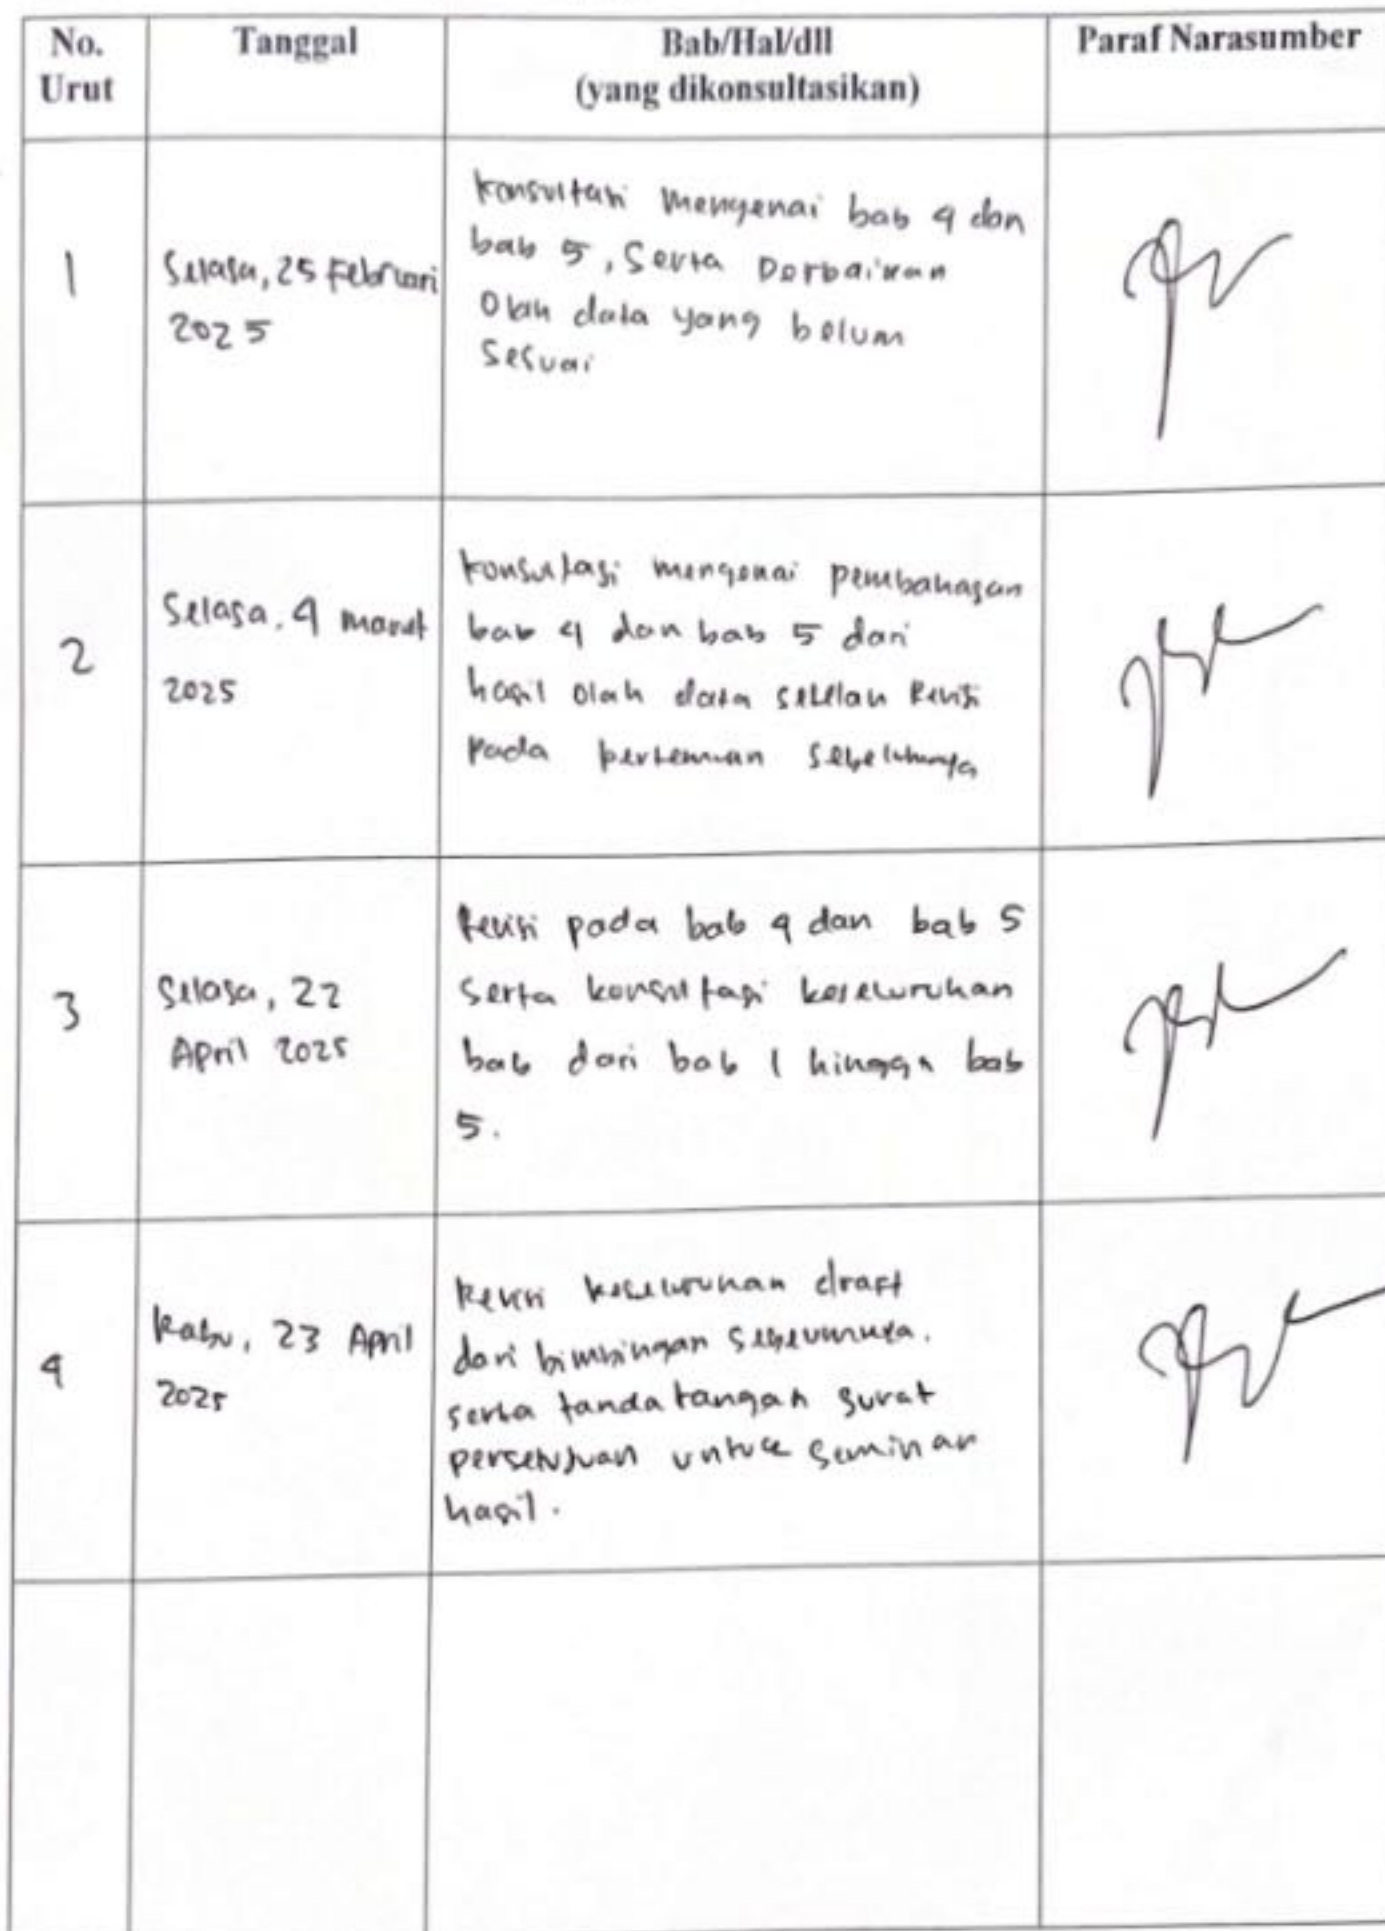 No. Urut
Tanggal
Bab/Hal/dll
(yang dikonsultasikan)
Paraf Narasumber
1
Selasa, 25 Februari
2025
Konsultasi mengenai bab 4 dan
bab 5, serta Perbaikan
Olah data yang belum
Sesuai
2
Selasa, 4 maret
2025
Konsultasi mengenai pembahasan
bab 4 dan bab 5 dari
hasil olah data setelah Revisi
Pada pertemuan sebelumnya
3
Selasa, 22
April 2025
Revisi pada bab 4 dan bab 5
serta konsultasi keseluruhan
bab dari bab 1 hingga bab
5.
4
Rabu, 23 April
2025
Revisi keseluruhan draft
dari bimbingan sebelumnya.
serta tanda tangan surat
persetujuan untuk Seminar
hasil.